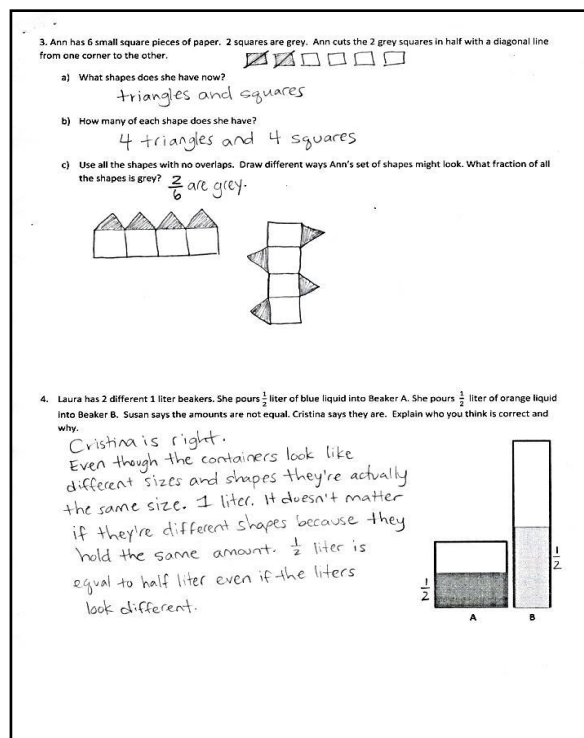 3. Ann has 6 small square pieces of paper. 2 squares are grey. Ann cuts the 2 grey squares in half with a diagonal line
from one corner to the other.
a) What shapes does she have now?
triangles and squares
b) How many of each shape does she have?
4 triangles and 4 squares
c) Use all the shapes with no overlaps. Draw different ways Ann's set of shapes might look. What fraction of all
the shapes is grey? 2/6 are grey.
4. Laura has 2 different 1 liter beakers. She pours 1/2 liter of blue liquid into Beaker A. She pours 1/2 liter of orange liquid
into Beaker B. Susan says the amounts are not equal. Cristina says they are. Explain who you think is correct and
why.
Cristina is right.
Even though the containers look like
different sizes and shapes they're actually
the same size. 1 liter. It doesn't matter
if they're different shapes because they
hold the same amount. 1/2 liter is
equal to half liter even if the liters
look different.
1/2
1/2
A B